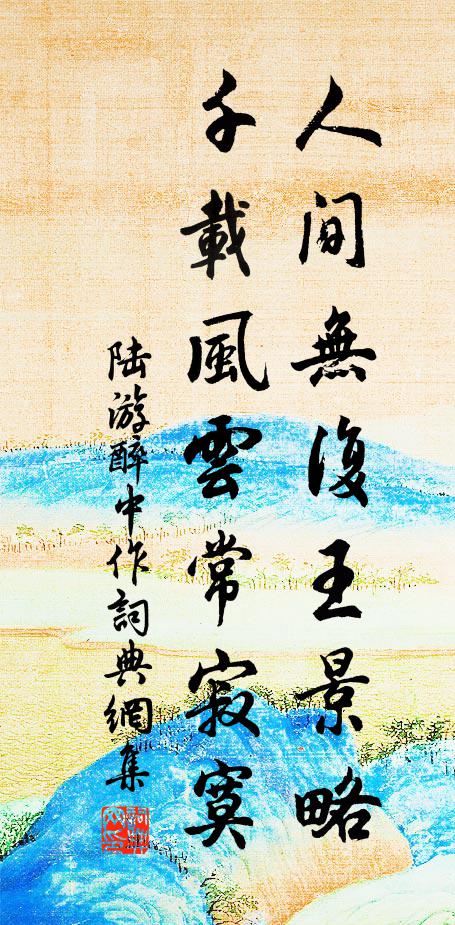 人間無復王景略
千載風雲常寂寞
陸游醉中作詞典網集